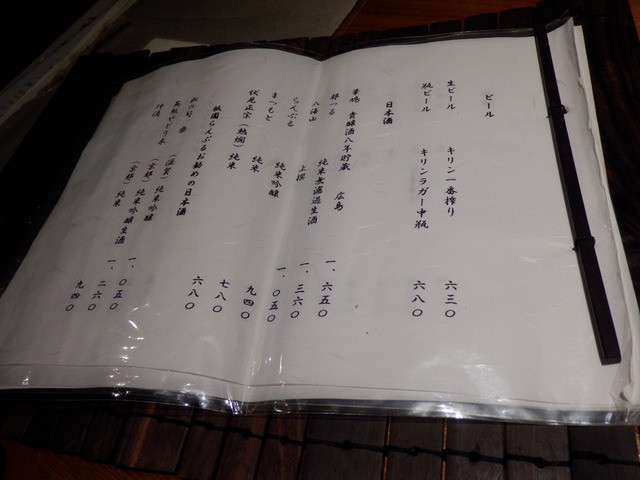 ビール
生ビール キリン一番搾り 六三〇
瓶ビール キリンラガー中瓶 六八〇
日本酒
華鳩 貴醸酒八年貯蔵 広島
純米無濾過生酒 一、六五〇
八海山 上撰 一、三六〇
らんぶる 純米吟醸 一、〇五〇
まつもと 純米 九四〇
伏見正宗(熱燗) 純米 七八〇
六八〇
祇園らんぶるお勧めの日本酒
(滋賀) 純米吟醸 一、〇五〇
(京都) 純米吟醸生酒 一、二六〇
(京都) 純米 九四〇